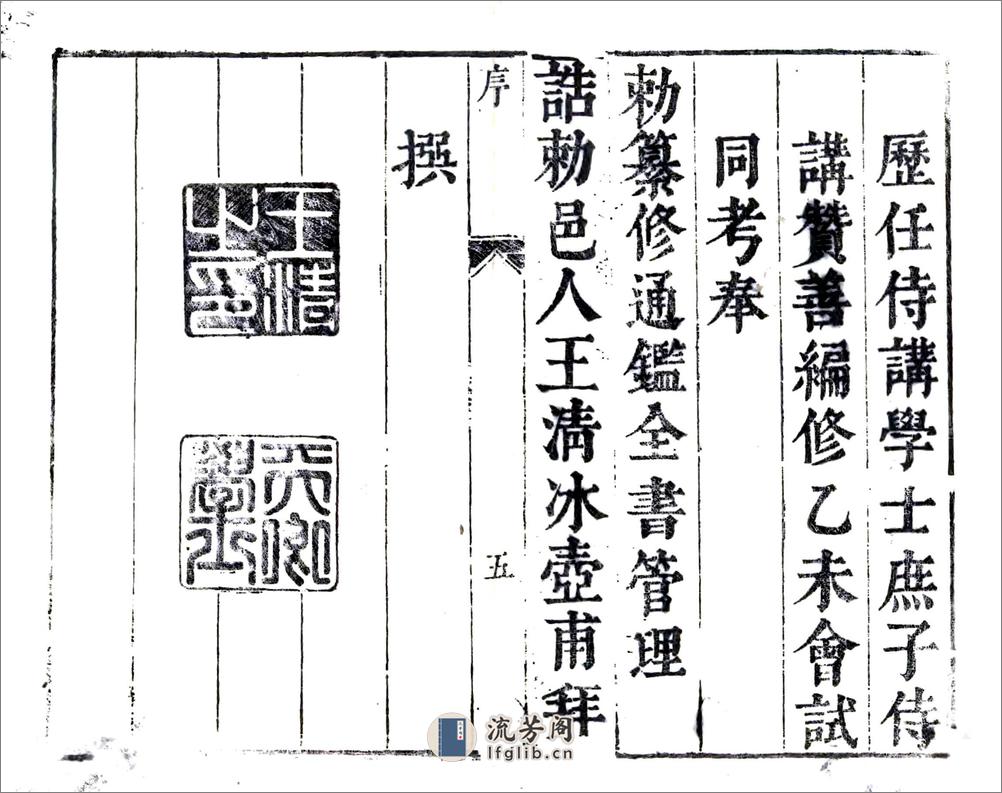 歷任侍講學士庶子侍
講贊善編修乙未會試
同考奉
勅纂修通鑑全書管理
誥勅邑人王清冰壺甫拜
撰
序
五
王清之印
學士
流芳阁
lfglib.cn